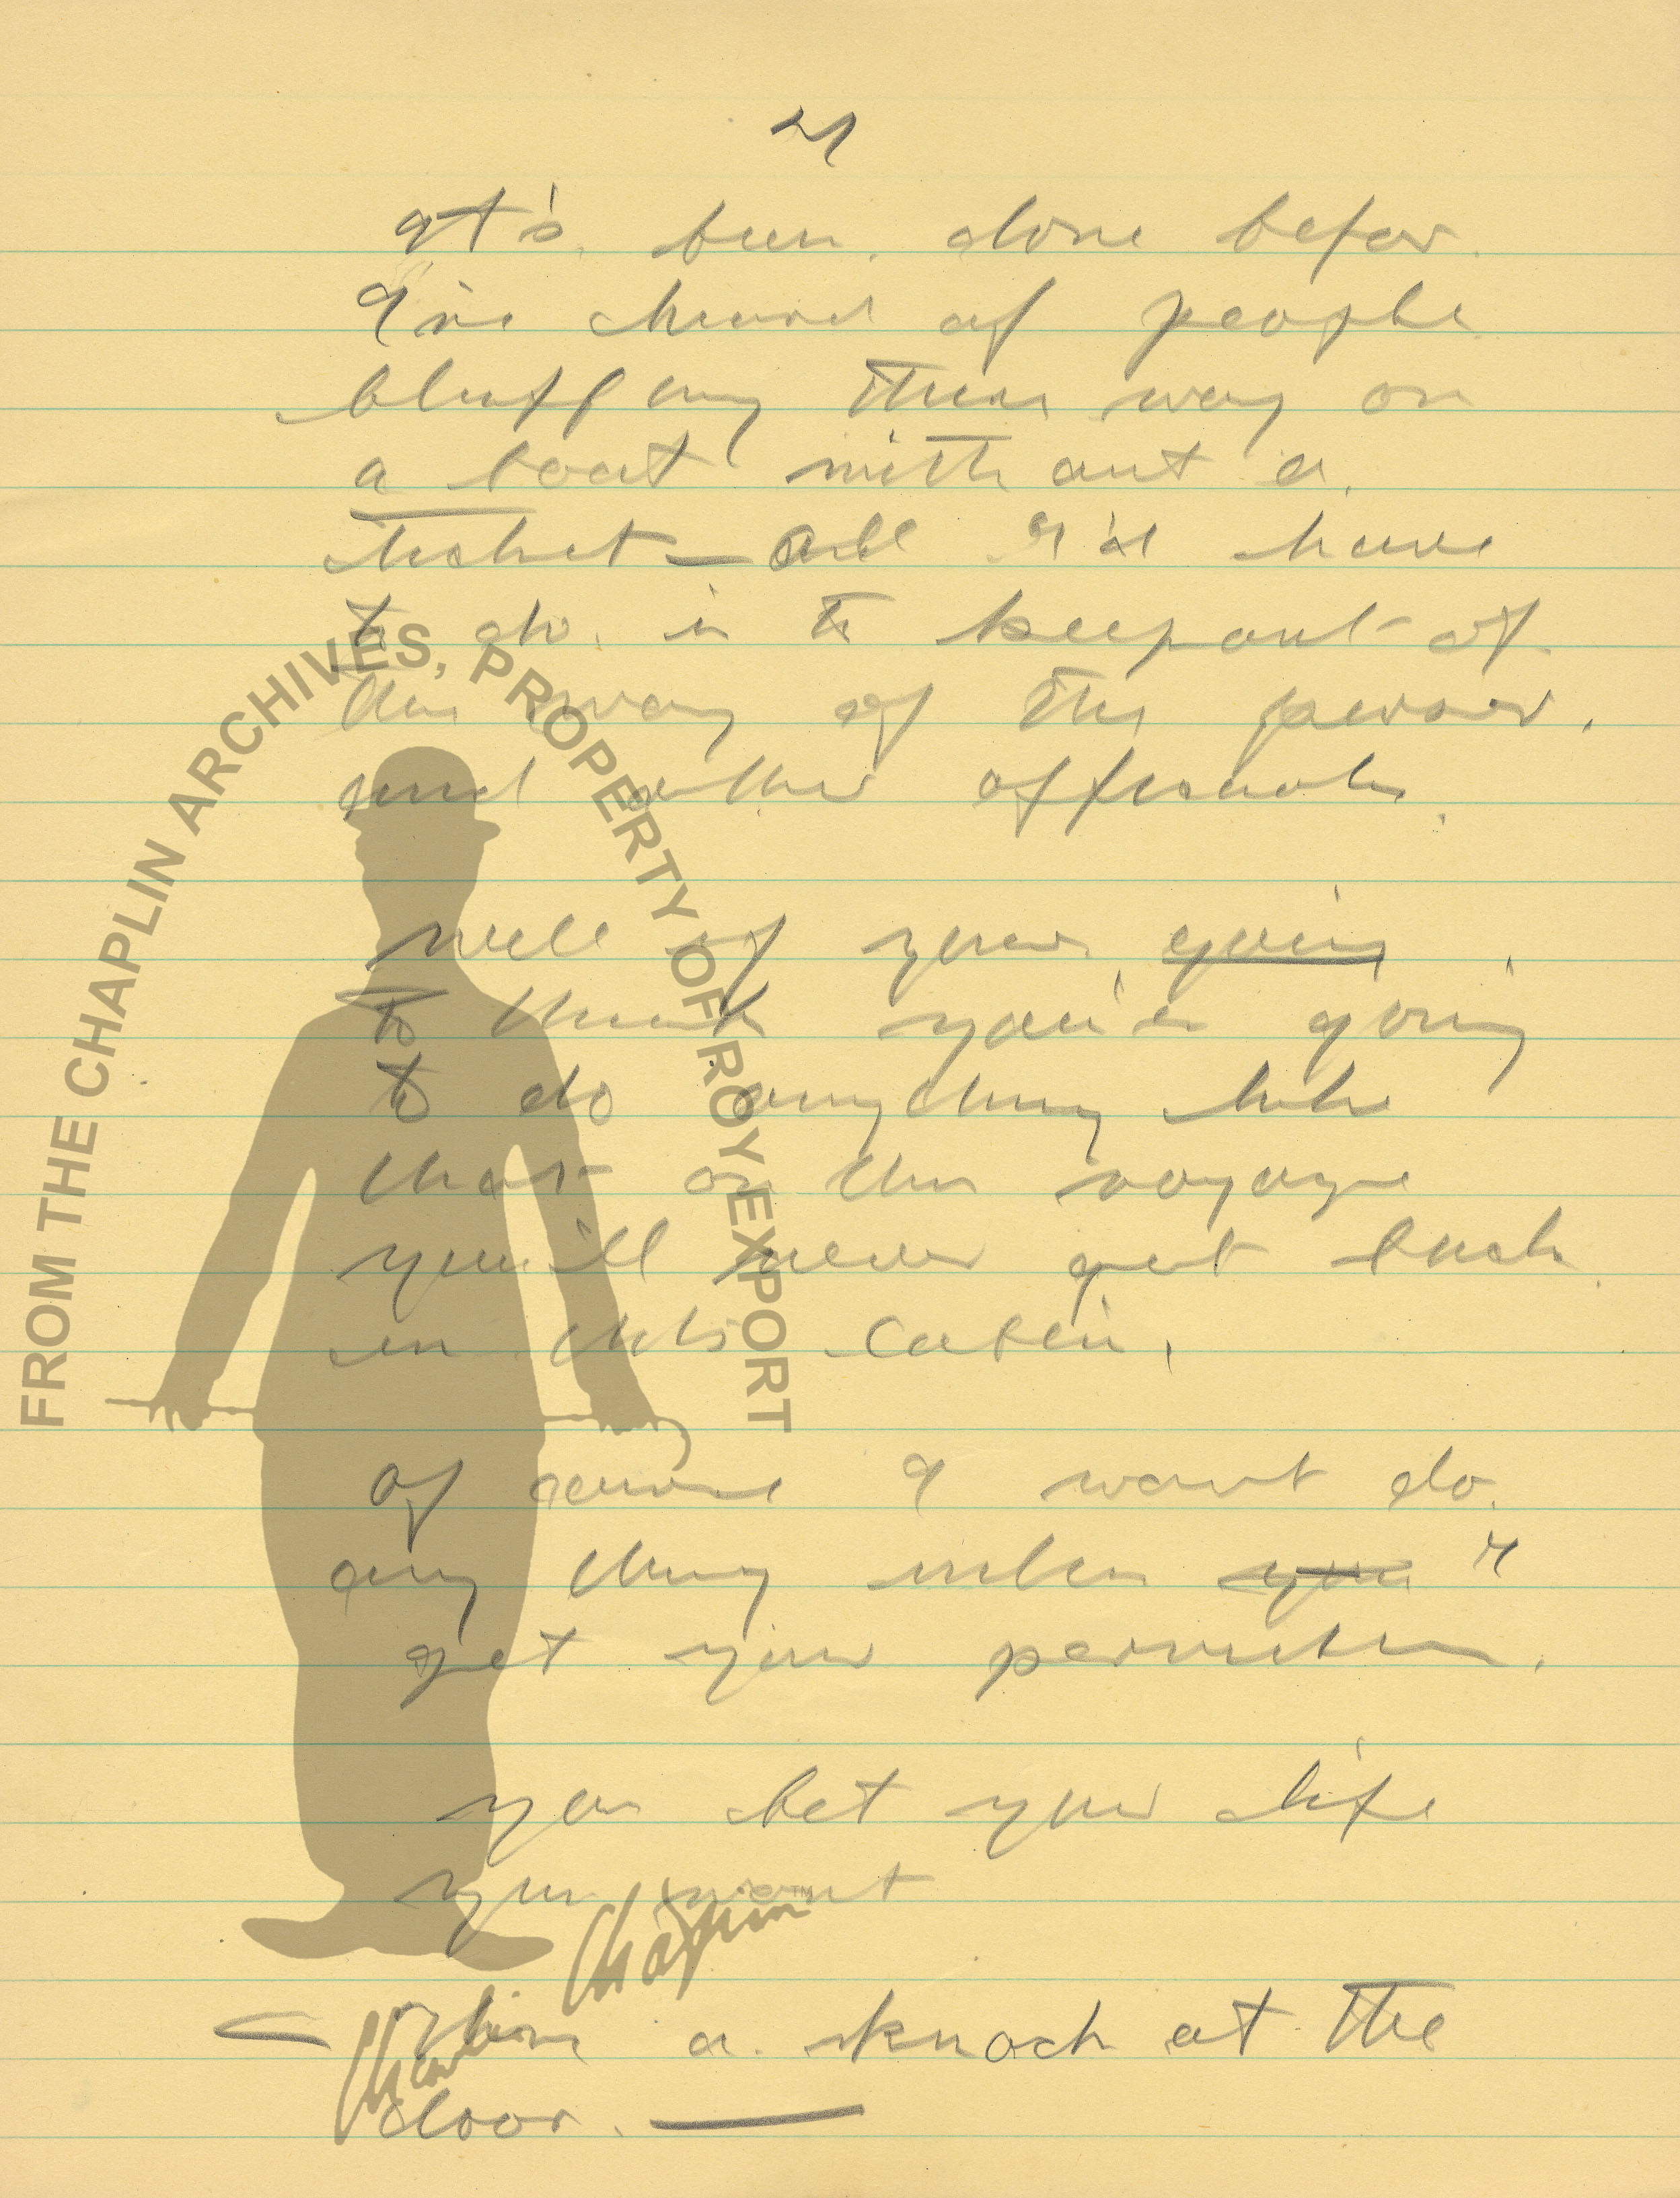 21
It's been done befor.
I've heard of people
bluffing their way on
a boat without a
ticket — all I'd have
to do is to keep out of
the way of the purser.
and other officials.
well if your going
to think you're going
to do anything like
that on this voyage
you'll never get back
in this cabin.
of course I wont do
any thing unless you I
get your permission.
you bet your life
you wont
— Then a knock at the
door. —
FROM THE CHAPLIN ARCHIVES, PROPERTY OF ROY EXPORT
Charlie Chaplin